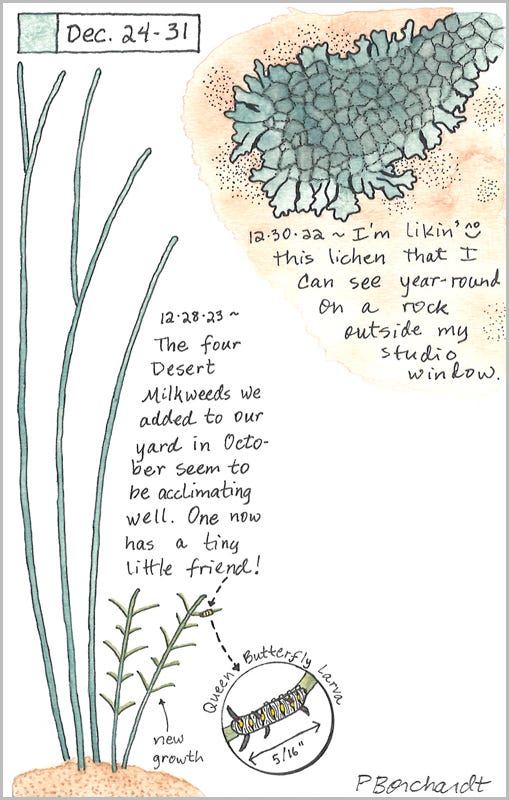 Dec. 24-31
12.30.22 ~ I'm likin'
this lichen that I
can see year-round
on a rock
outside my
studio
window.
12.28.23 ~
The four
Desert
Milkweeds we
added to our
yard in Octo-
ber seem to
be acclimating
well. One now
has a tiny
little friend!
Queen Butterfly Larva
5/16"
new
growth
PBorchardt